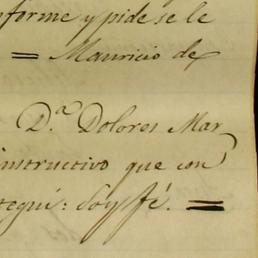 nforme y pide se le
= Mauricio de
D.ª Dolores Mar
instructivo que con
tegui: Doy fé. =